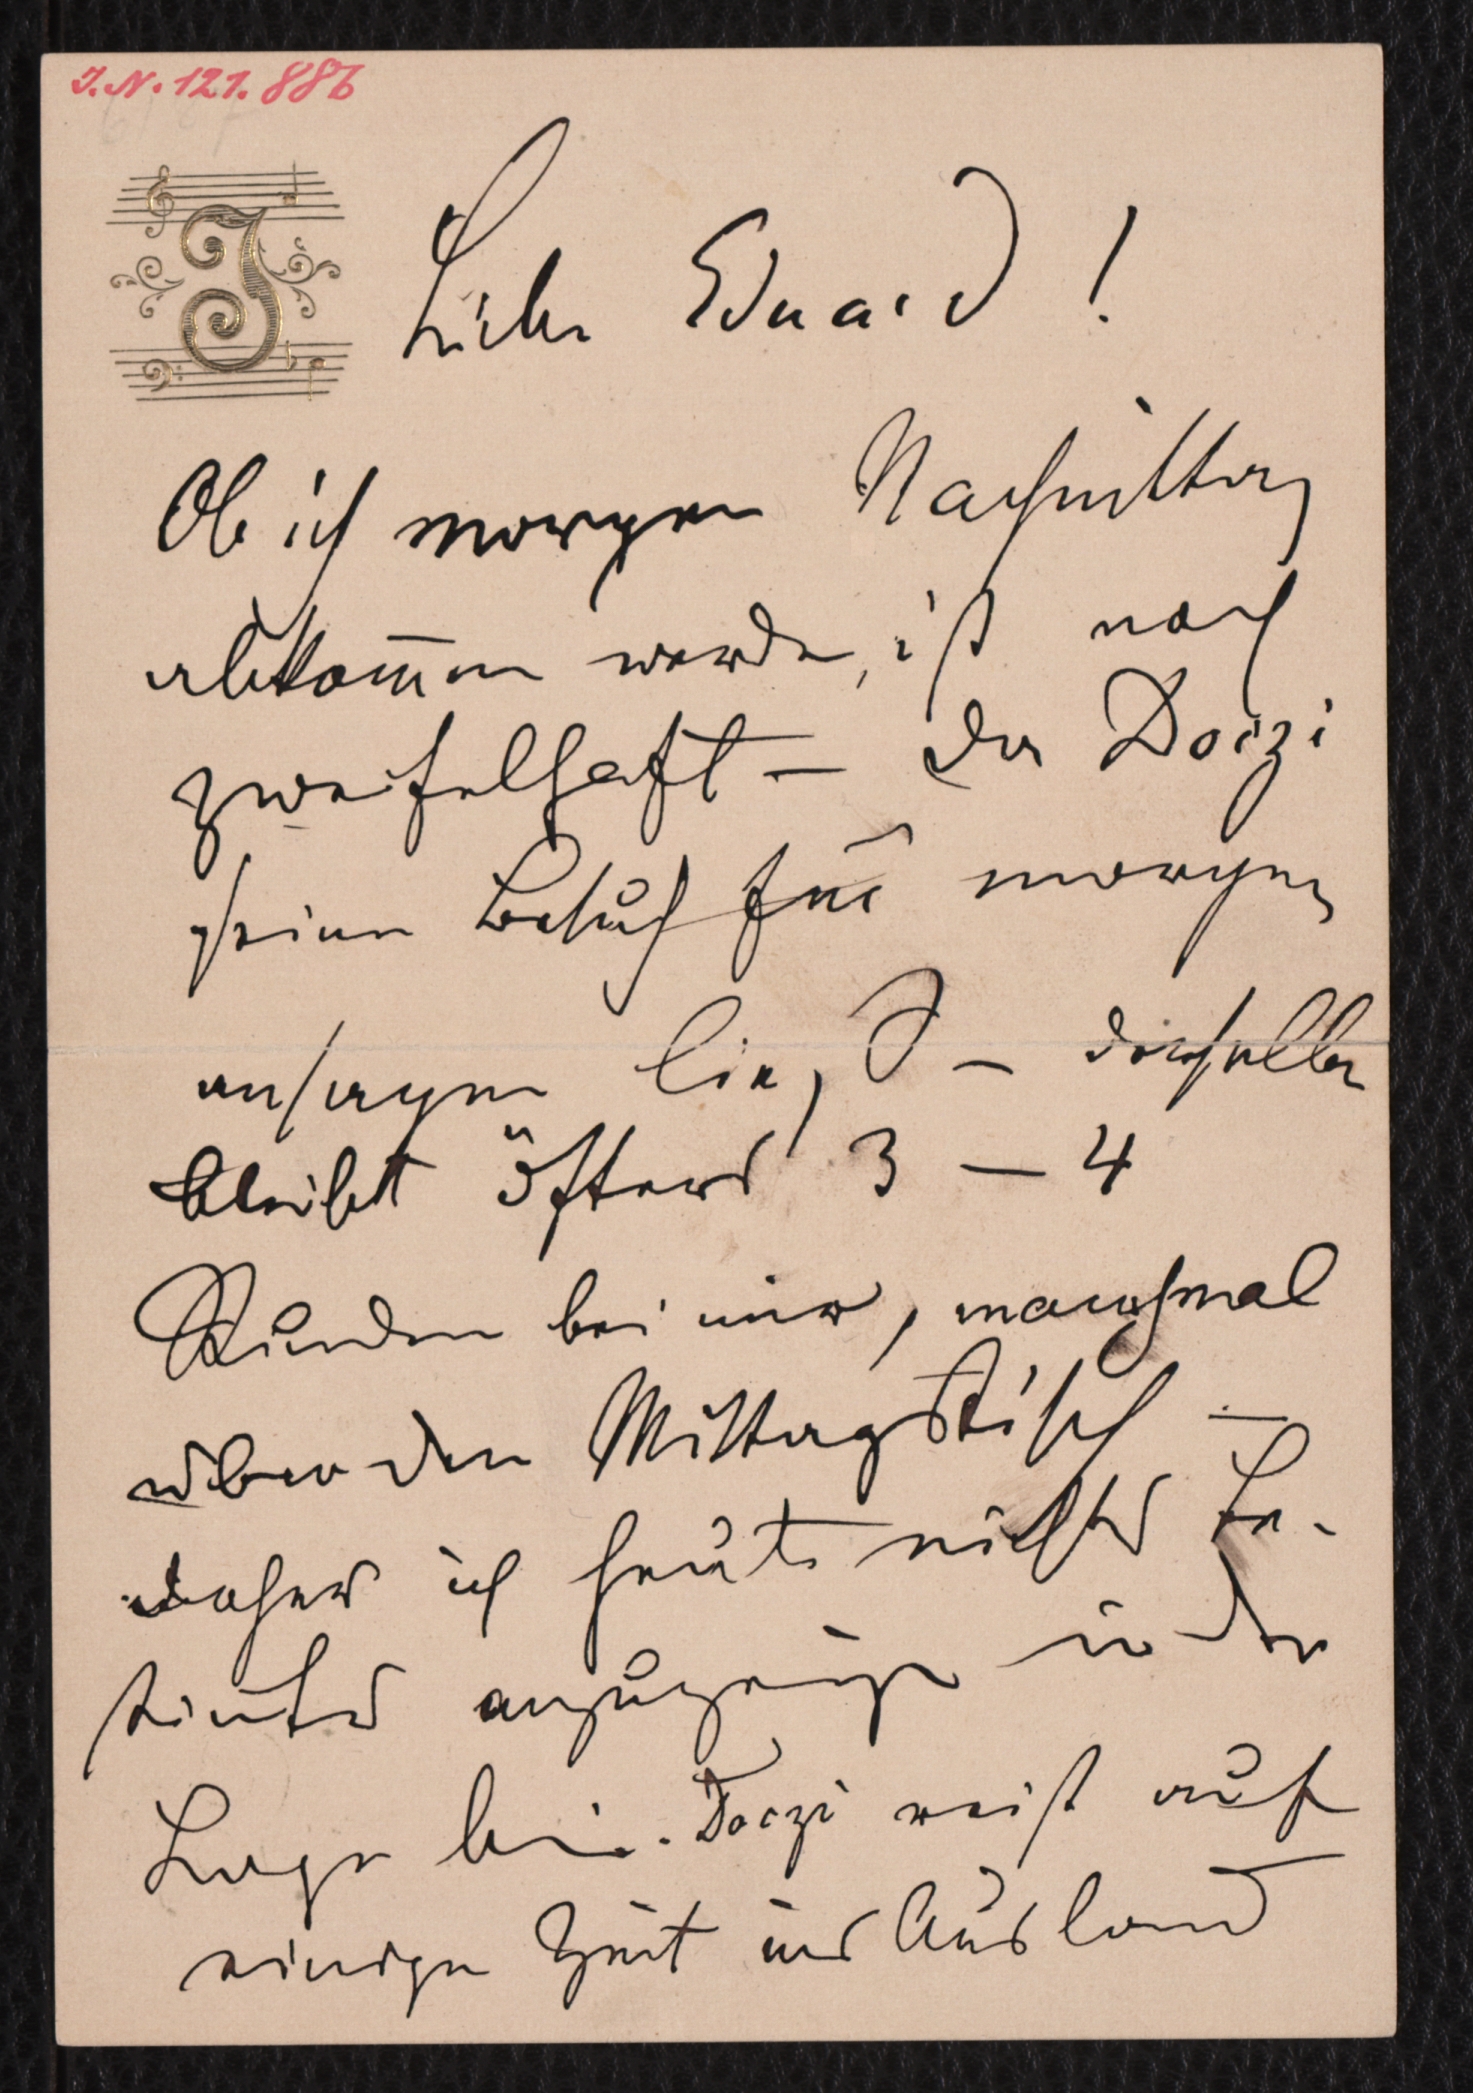 I.N. 121.886
J
Lieber Eduard!
Ob ich morgen Nachmittag
abkom̄en werde, ist noch
zweifelhaft – da Doczi
seinen Besuch für morgen
ansagen ließ – derselbe
bleibt öfters 3 – 4
Stunden bei mir, manchmal
über den Mittagstisch –
daher ich heute nichts Be-
stimtes anzuzeigen in der
Lage bin. Doczi reist auf
einige Zeit ins Ausland